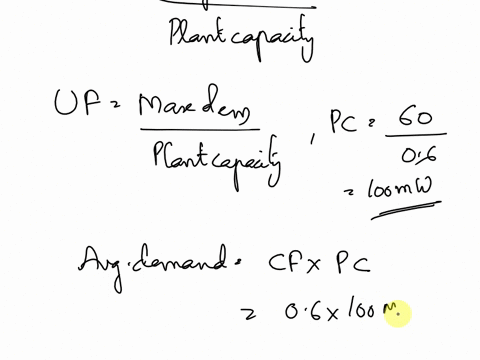 Plant capacity
UF = Max dem / Plant capacity , PC = 60 / 0.6
= 100 mW
Avg. demand = CF x PC
= 0.6 x 100 m